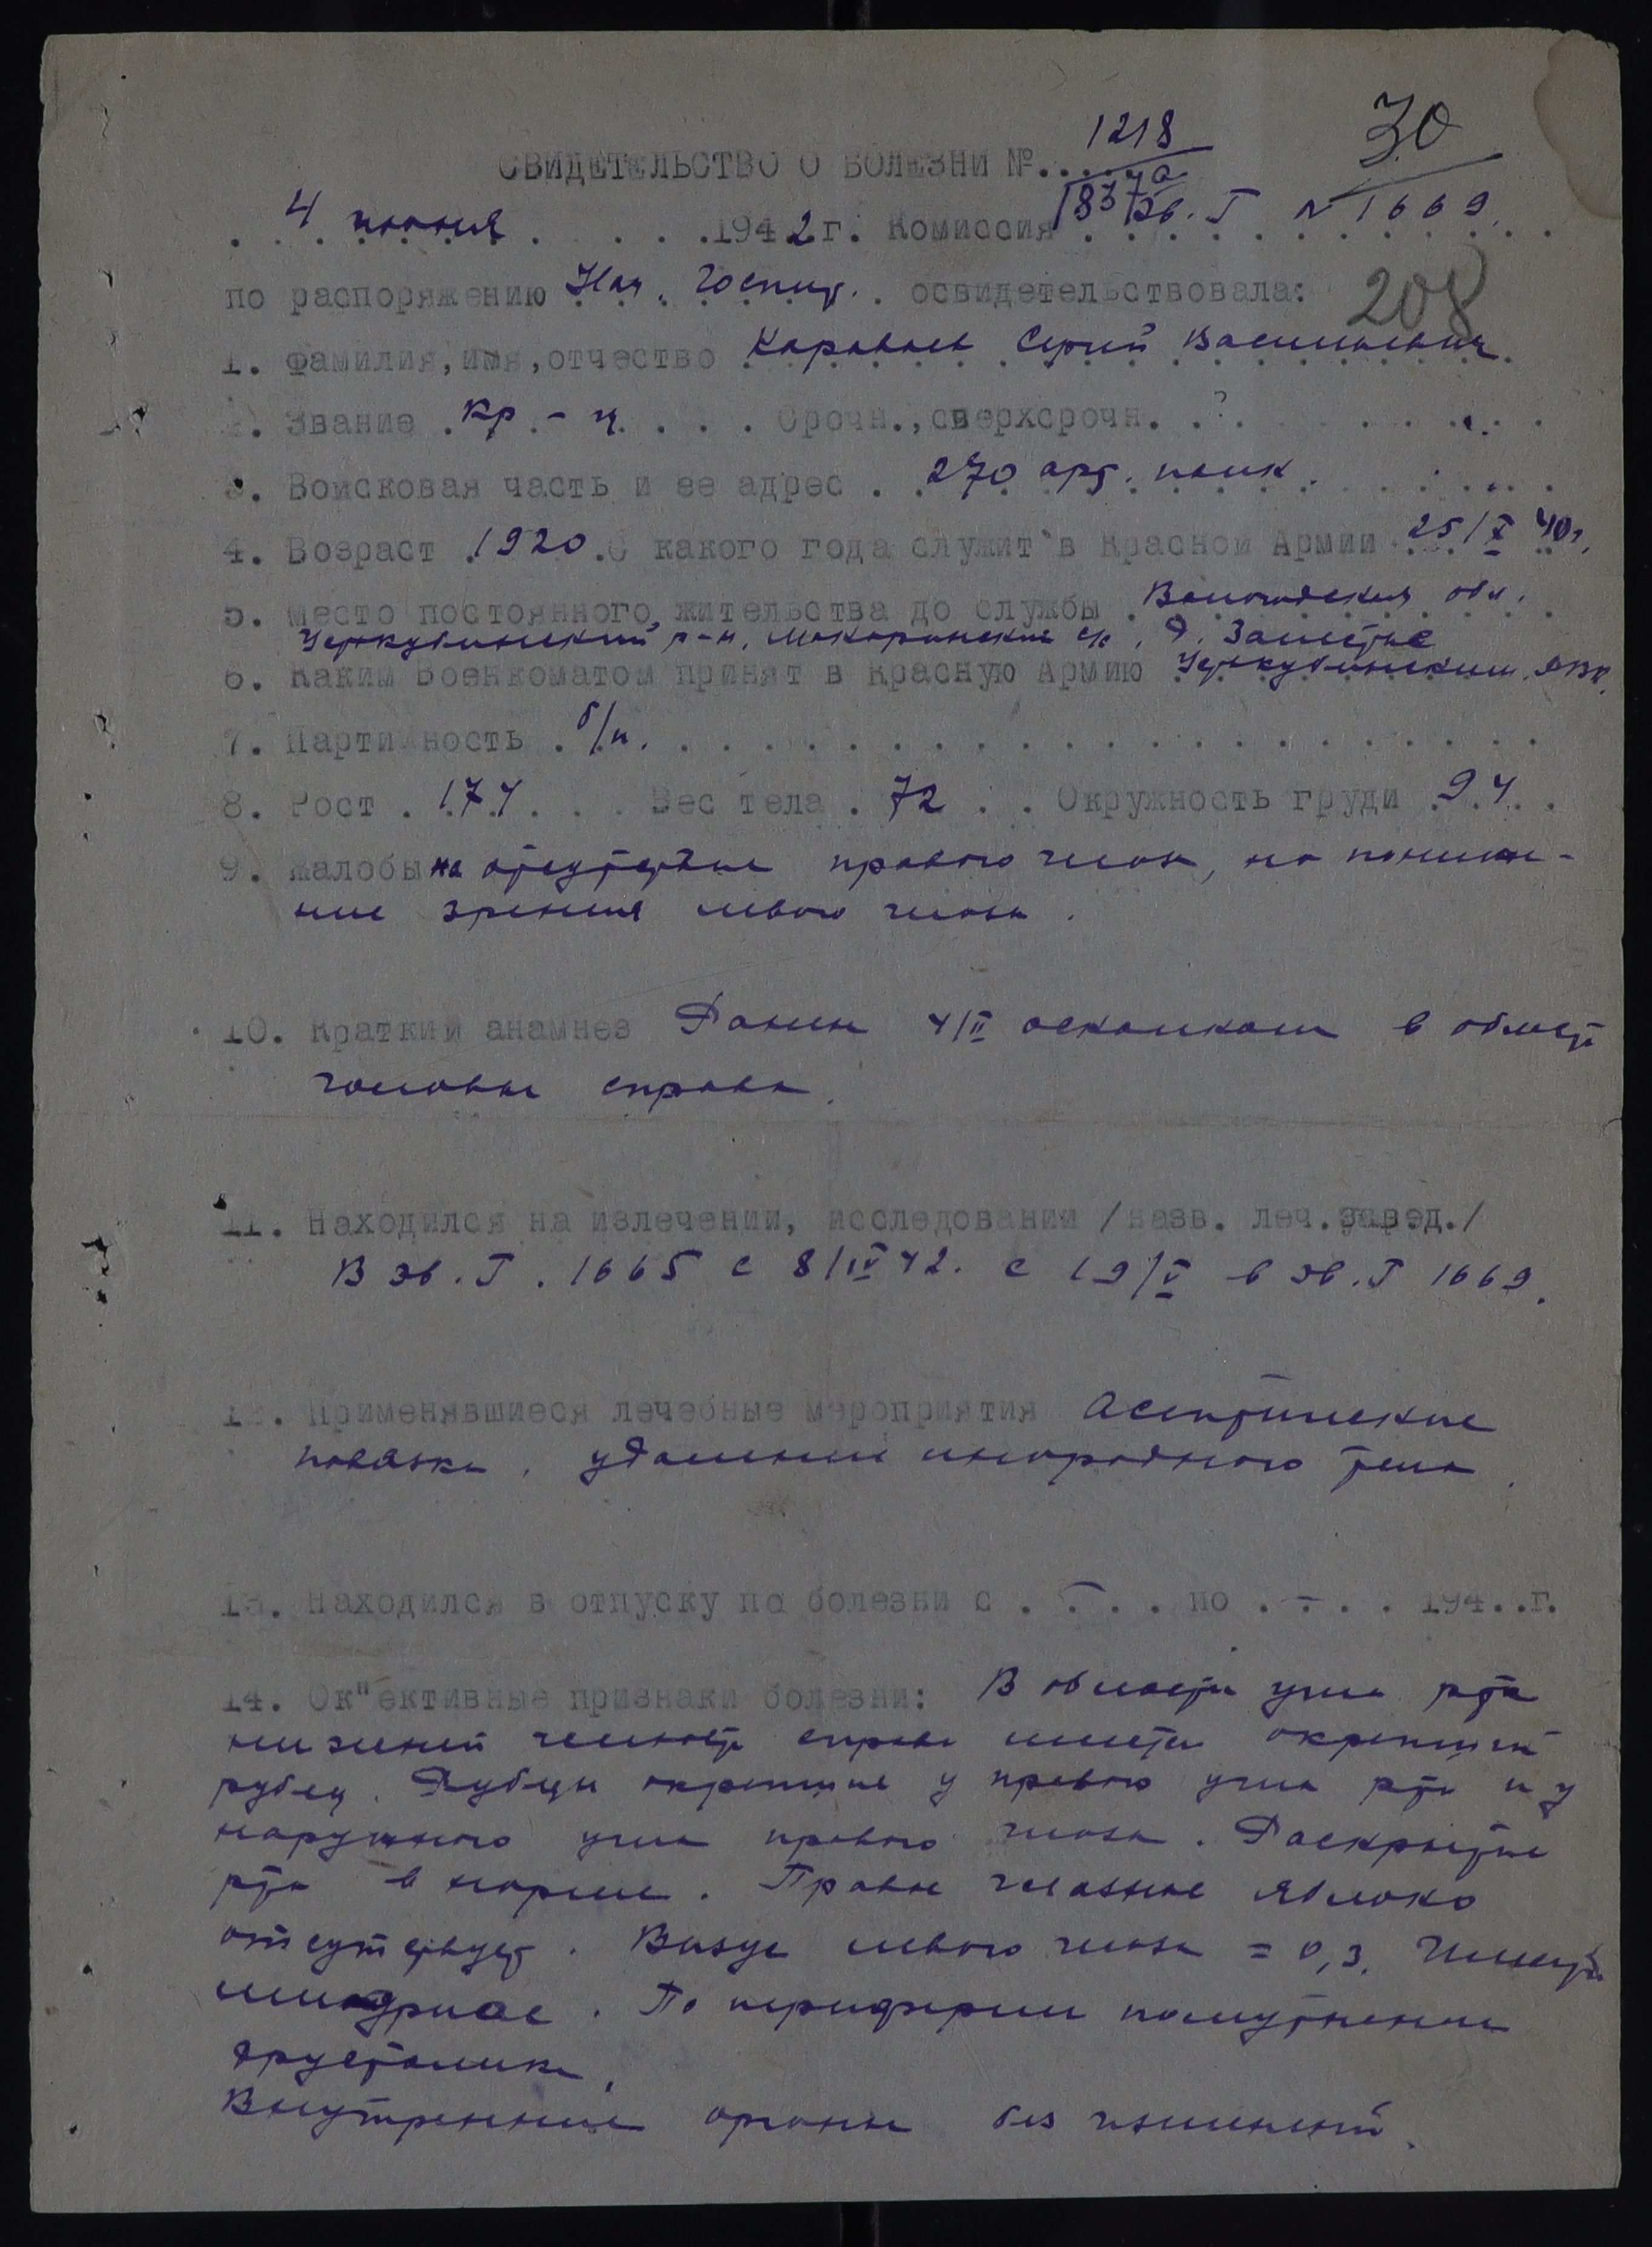 1218
30
СВИДЕТЕЛЬСТВО О БОЛЕЗНИ №.....
1837а
4 июня 1942 г. Комиссия Эв. Г N 1669.
по распоряжению Нач. Госпит. освидетельствовала:
208
1. Фамилия, имя, отчество Караваев Сергей Васильевич
2. Звание кр-ц. Срочн., сверхсрочн. ?
3. Воисковая часть и ее адрес 270 арт. полк.
4. Возраст 1920 С какого года служит в Красной Армии 25/X 40г.
5. Место постоянного жительства до службы Вологодская обл.
Усткубинский р-н, Макаринский с/с, д. Заметье
6. Каким Военкоматом принят в Красную Армию Усткубинским РВК.
7. Партийность б/п.
8. Рост 174 Вес тела 72 Окружность груди 94
9. Жалобы на отсутствие правого глаза, на пониже-
ние зрения левого глаза.
10. Краткий анамнез Ранен 4/II осколком в област
головы справа.
11. Находился на излечении, исследовании /назв. леч. завед./
В эв. Г. 1665 с 8/IV 42. с 19/V в эв. Г 1669.
12. Применявшиеся лечебные мероприятия Асептические
повязки, удаление инородного тела.
13. Находился в отпуску по болезни с . – . . по . – . . 194..г.
14. Ок"ективные признаки болезни: В области угла рта
нижней челюсти справа имеется окрепший
рубец. Рубцы окрепшие у правого угла рта и у
наружного угла правого глаза. Раскрытие
рта в норме. Правое глазное яблоко
отсутствует. Визус левого глаза = 0,3. Имеется
мидриас. По периферии помутнение
хрусталика.
Внутренние органы без изменений.